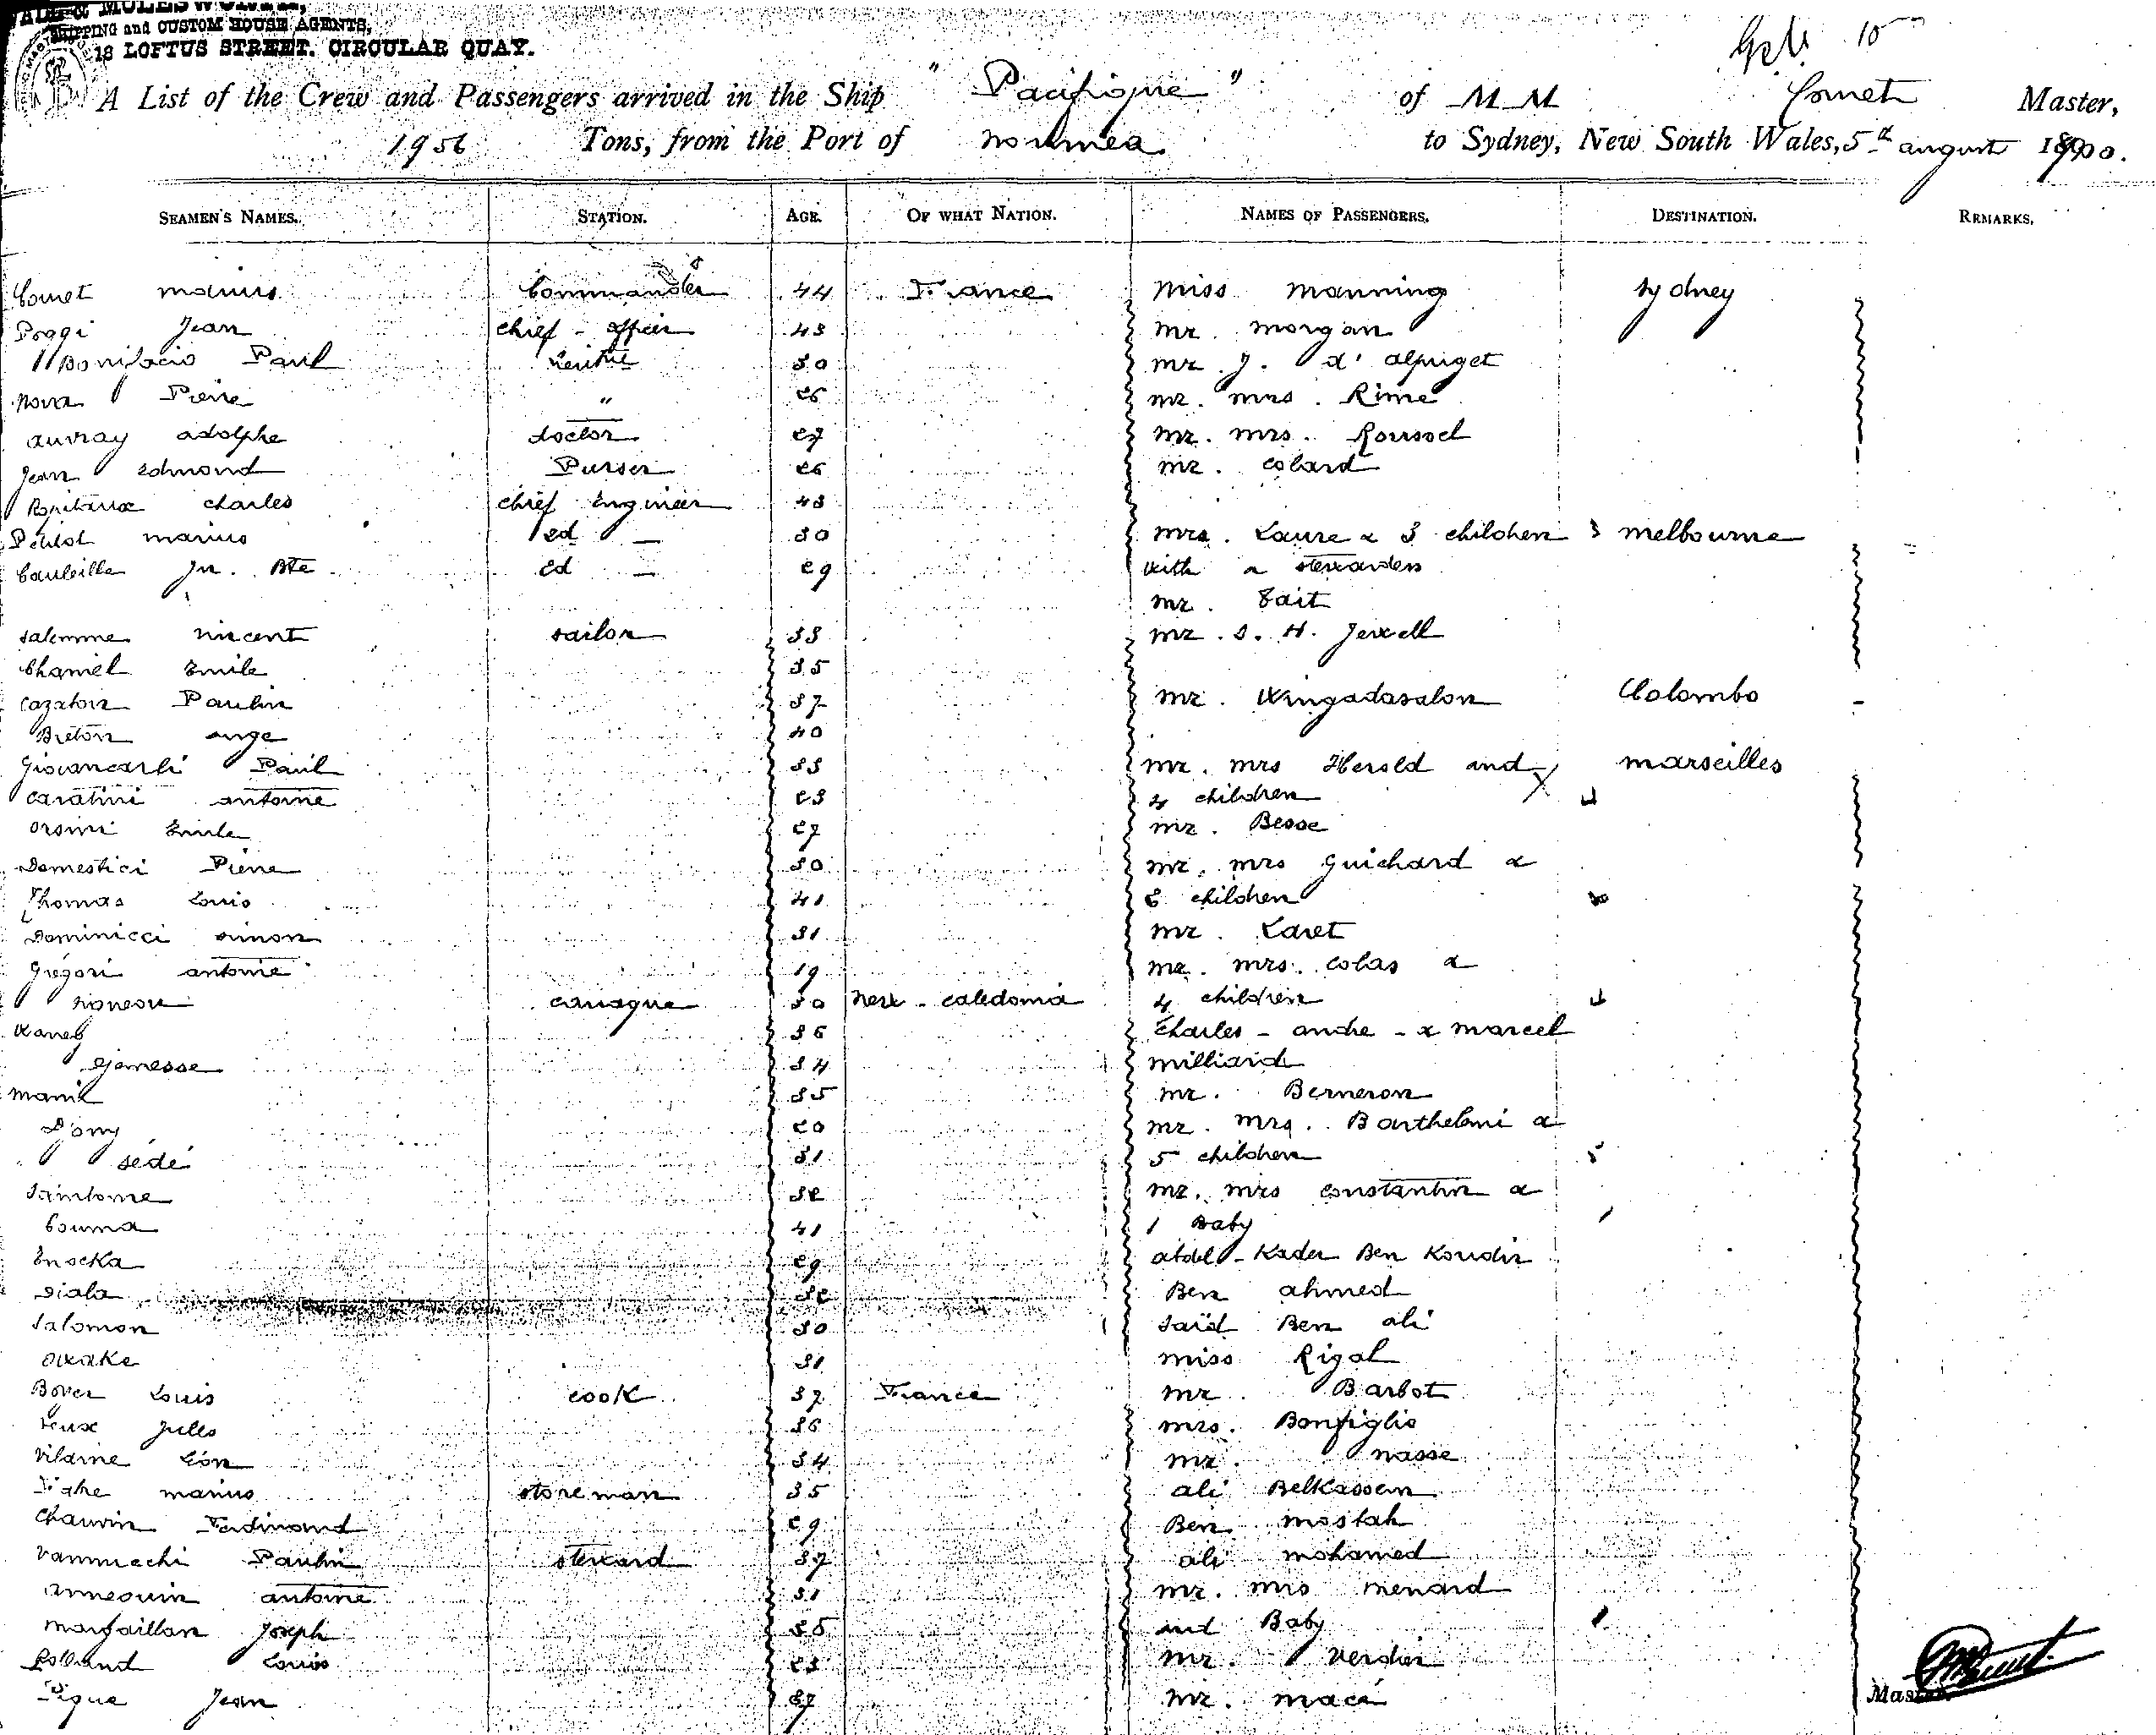 SHIPPING and CUSTOM HOUSE AGENTS,
18 LOFTUS STREET. CIRCULAR QUAY.
10
A List of the Crew and Passengers arrived in the Ship "Pacifique" of M M Comet Master,
1956 Tons, from the Port of noumea to Sydney, New South Wales, 5th august 1900.
SEAMEN'S NAMES. STATION. AGE. OF WHAT NATION. NAMES OF PASSENGERS. DESTINATION. REMARKS.
Comet marius Commander 44 France miss manning sydney
Poggi Jean chief - officer 43 mr. morgan
Bonifacio Paul 30 mr J. d' alpuget
nova Pierre " 26 mr. mrs. Rime
auvray adolphe doctor 27 mr. mrs. Roussel
Jean Edmond Purser 26 mr. colard
charles chief Engineer 43
marius 2d — 30 mrs. Laure & 3 children 3 melbourne
Jn. Bte 2d — 29 with a stewardess
mr. Tait
salemme vincent sailor 33 mr. S. H. Jewell
Chamel Emile 35
Paulin 37 mr. Wingadasalon Colombo
Breton ange 40
Giovancarli Paul 33 mr. mrs Herold and marseilles
caratini antoine 23 4 children 4
orsini Emile 27 mr. Besse
Domestici Pierre 30 mr. mrs guichard &
Thomas Louis 41 2 children
Dominicci simon 31 mr. Laret
Gregori antoine 19 mr. mrs. colas &
canaque 30 new - caledonia 4 children 4
36 Charles - andre - & marcel
34 milliard
35 mr. Berneron
20 mr. mrs. Barthelemi &
sédé 31 5 children 5
32 mr. mrs constantin &
Couma 41 1 Baby 1
Enocka 29 abdel - Kader Ben Koudir
siala 32 Ben ahmed
salomon 30 saïd Ben ali
owake 31 miss Rigal
Boyer Louis cook 37 France mr. Barbot
Jules 36 mrs. Bonfiglio
Vilaine Léon 34 mr. nasse
marius storeman 35 ali Belkassem
Chauvin Ferdinand 29 Ben mostah
Vannucchi Paulin steward 37 ali mohamed
annequin antoine 31 mr. mrs menard
margaillan Joseph 35 and Baby 1
Rolland Louis 23 mr. verdier
Pigue Jean 27 mr. macé
Master.